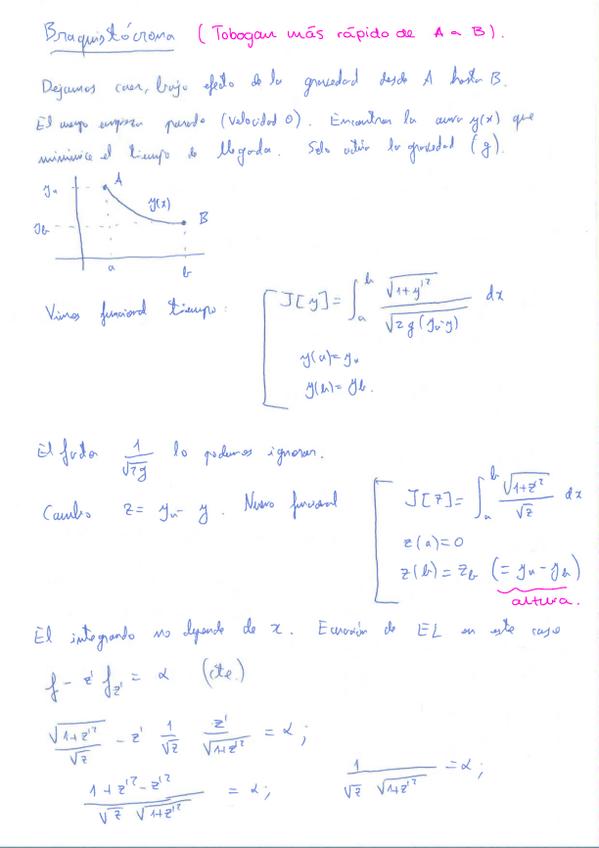 Braquistócrona (Tobogan más rápido de A a B).
Dejamos caer, bajo efecto de la gravedad desde A hasta B.
El cuerpo empieza parado (velocidad 0). Encontrar la curva y(x) que
minimice el tiempo de llegada. Solo actúa la gravedad (g).
yₐ A
y(x)
y_b B
a b
Vimos funcional tiempo: J[y] = ∫ₐᵇ √(1+y'²) / √(2g(yₐ-y)) dx
y(a) = yₐ
y(b) = y_b.
El factor 1/√(2g) lo podemos ignorar.
Cambio z = yₐ - y. Nuevo funcional J[z] = ∫ₐᵇ √(1+z'²) / √z dx
z(a) = 0
z(b) = z_b (= yₐ - y_b)
altura.
El integrando no depende de x. Ecuación de EL en este caso
f - z' f_z' = α (cte.)
√(1+z'²)/√z - z' 1/√z z'/√(1+z'²) = α;
(1+z'²-z'²)/(√z √(1+z'²)) = α; 1/(√z √(1+z'²)) = α;